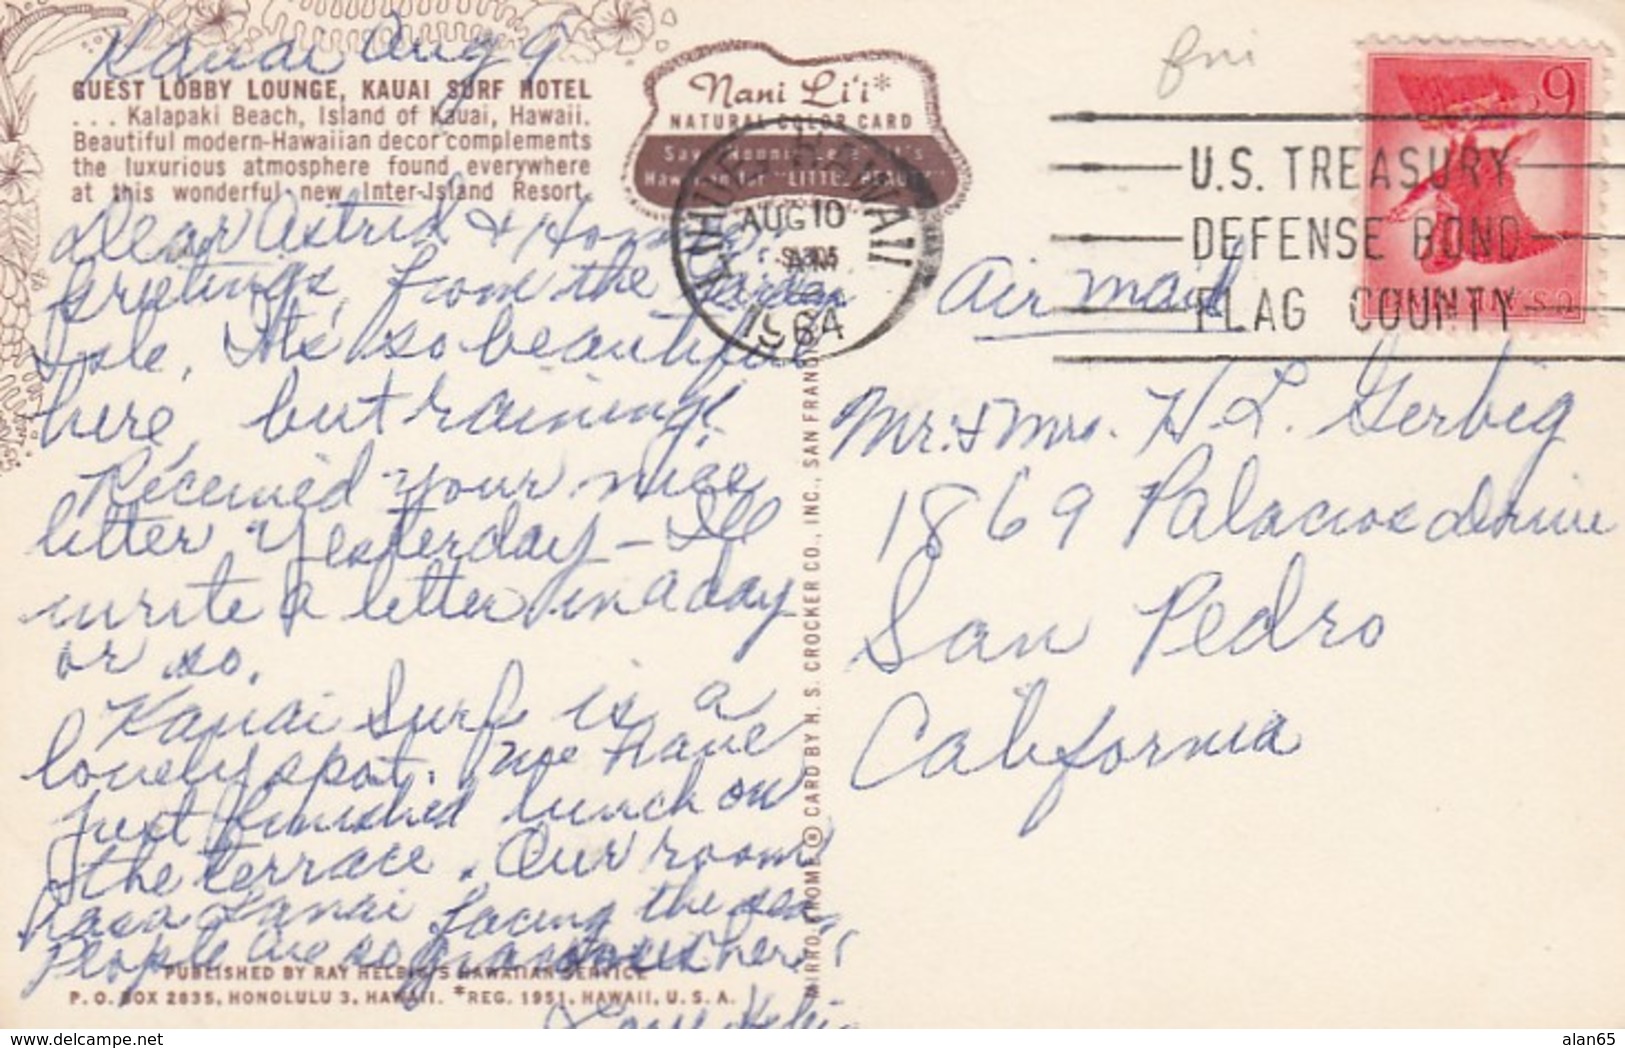 Kauai Aug 9
GUEST LOBBY LOUNGE, KAUAI SURF HOTEL
... Kalapaki Beach, Island of Kauai, Hawaii.
Beautiful modern-Hawaiian decor complements
the luxurious atmosphere found everywhere
at this wonderful new Inter-Island Resort.
Dear Astrid &
Greetings from the Garden
Isle, It's so beautiful
here, but raining!
Received your nice
letter yesterday – I'll
write a letter in a day
or so.
Kauai Surf is a
lovely spot. We have
just finished lunch on
the terrace. Our room
has a Lanai facing the sea
People are so gracious here!
Love
PUBLISHED BY RAY HELBIG'S HAWAIIAN SERVICE
P.O. BOX 2835, HONOLULU 3, HAWAII. *REG. 1951, HAWAII, U.S.A.
Nani Li'i*
NATURAL COLOR CARD
Say "Nonnie Lee" It's
Hawaiian for "LITTLE BEAUTY"
LIHUE HAWAII
AUG 10
AM
1964
MIRRO-KROME® CARD BY H. S. CROCKER CO., INC., SAN FRANC
U.S. TREASURY
DEFENSE BOND
FLAG COUNTY
6c
U.S. AIR MAIL
Air mail
Mr. & Mrs. H. L. Gerbig
1869 Palacios Drive
San Pedro
California
alan65